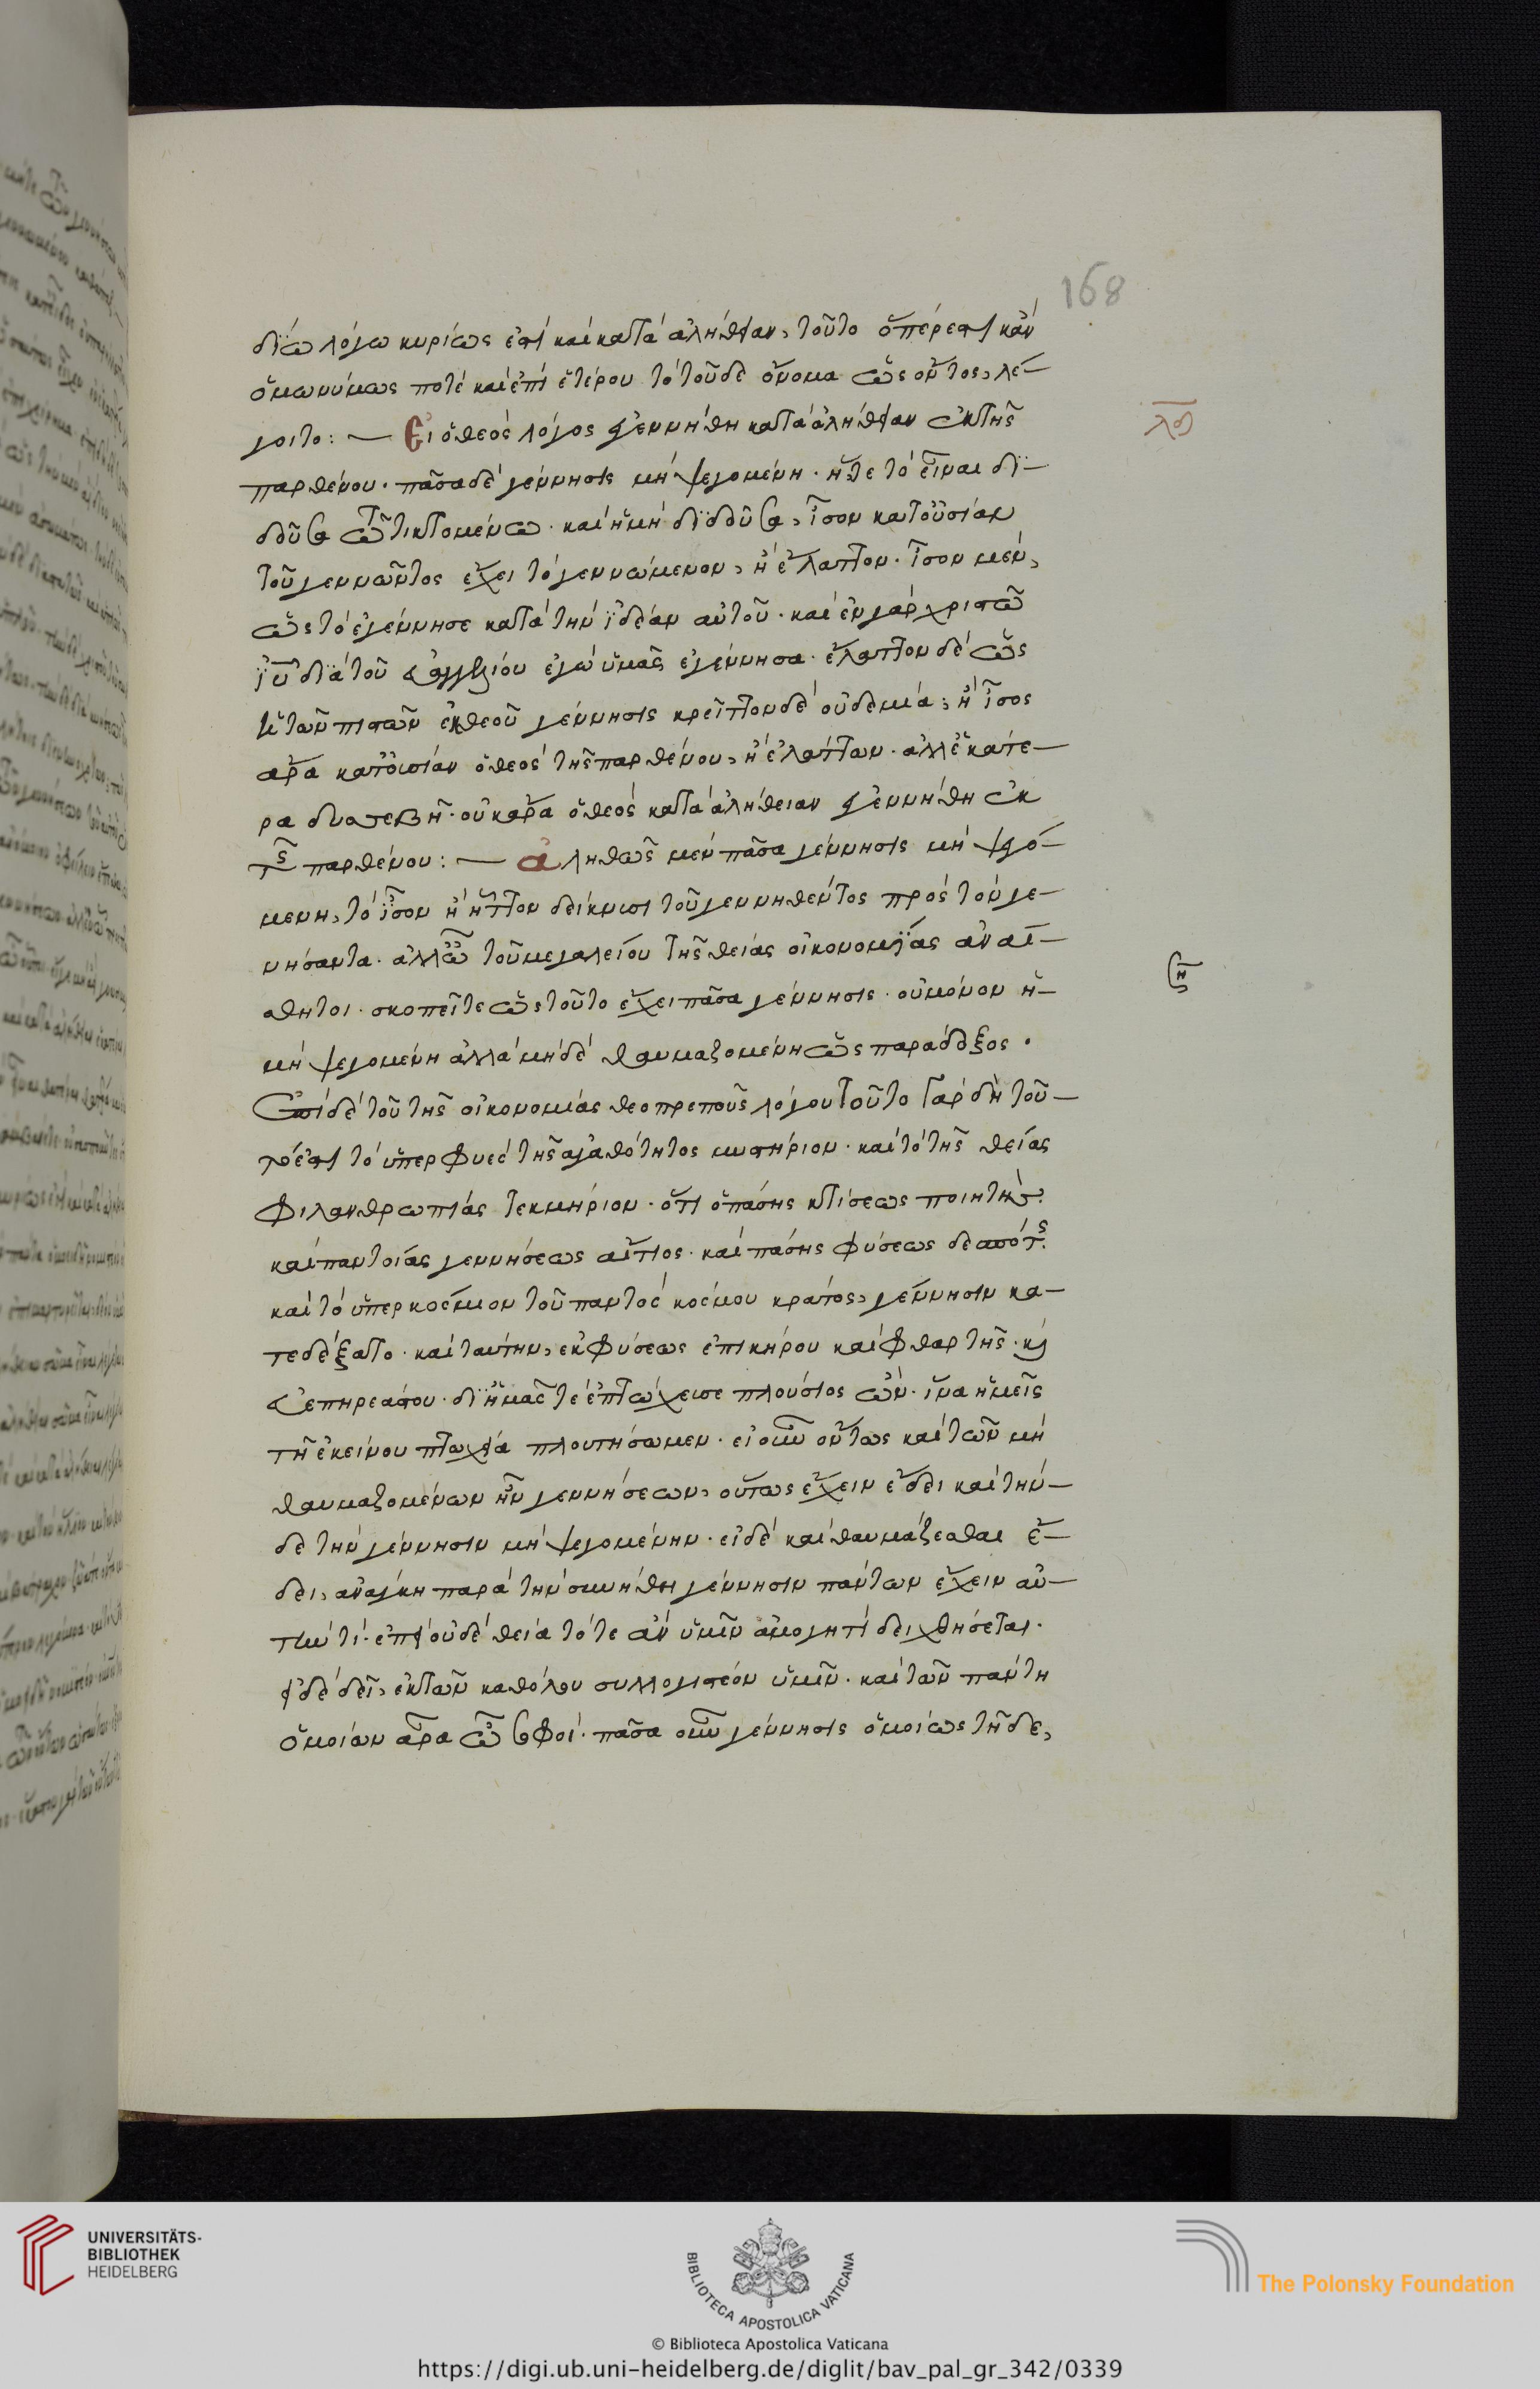 168
δίω λόγω κυρίως ἐστὶ καὶ κατὰ ἀλήθειαν, τοῦτο ὅπέρ ἐστι κἂν
ὁμωνύμως ποτὲ καὶ ἐπὶ ἑτέρου τὸ τοῦδε ὄνομα ὡς ὄντος, λέ–
γοιτο: — Εἰ ὁ θεὸς λόγος ἐγεννήθη κατὰ ἀλήθειαν ἐκ τῆς
λθ
παρθένου. πᾶσα δὲ γέννησις μὴ ψεγομένη. ἥτε τὸ εἶναι δι–
δοῦσα τῶ τικτομένω. καὶ ἡ μὴ διδοῦσα, ἴσον κατ' οὐσίαν
τοῦ γεννῶντος ἔχει τὸ γεννώμενον, ἢ ἔλαττον. ἴσον μὲν,
ὡς τὸ ἐγέννησε κατὰ τὴν ἰδέαν αὐτοῦ. καὶ ἐν γὰρ χριστῶ
ἰυ διὰ τοῦ εὐαγγελίου ἐγὼ ὑμᾶς ἐγέννησα. ἔλαττον δὲ ὡς
ἡ τῶν πιστῶν ἐκ θεοῦ γέννησις κρεῖττον δὲ οὐδεμία, ἢ ἴσος
ἄρα κατ' οὐσίαν ὁ θεὸς τῆς παρθένου, ἢ ἐλάττων. ἀλλ' ἑκάτε–
ρα δυσσεβῆ. οὐκ ἄρα ὁ θεὸς κατὰ ἀλήθειαν ἐγεννήθη ἐκ
τῆς παρθένου: — ἀληθῶς μὲν πᾶσα γέννησις μὴ ψεγο–
μένη, τὸ ἴσον ἢ ἧττον δείκνυσι τοῦ γεννηθέντος πρὸς τὸν γε–
νήσαντα. ἀλλ' ὦ τοῦ μεγαλείου τῆς θείας οἰκονομίας ἀναί–
σθητοι. σκοπεῖτε ὡς τοῦτο ἔχει πᾶσα γέννησις. οὐ μόνον ἡ–
μὴ ψεγομένη ἀλλὰ μηδὲ θαυμαζομένη ὡς παράδοξος.
ἐπὶ δὲ τοῦ τῆς οἰκονομίας θεοπρεποῦς λόγου τοῦτο γὰρ δὴ τοῦ–
τό ἐστι τὸ ὑπερφυὲς τῆς ἀγαθότητος μυστήριον. καὶ τὸ τῆς θείας
φιλανθρωπίας τεκμήριον. ὅτι ὁ πάσης κτίσεως ποιητὴς.
καὶ παντοίας γεννήσεως αἴτιος. καὶ πάσης φύσεως δεσπότης.
καὶ τὸ ὑπερκόσμιον τοῦ παντὸς κόσμου κράτος, γέννησιν κα–
τεδέξατο. καὶ ταύτην, ἐκ φύσεως ἐπικήρου καὶ φθαρτῆς. κ
εὐεπηρεάστου. δι' ἡμᾶς τὲ ἐπτώχευσε πλούσιος ὢν. ἵνα ἡμεῖς
τῆ ἐκείνου πτωχεία πλουτήσωμεν. εἰ οὖν οὕτως καὶ τῶν μὴ
θαυμαζομένων ἦν γεννήσεων, οὕτως ἔχειν ἔδει καὶ τήν–
δε τὴν γέννησιν μὴ ψεγομένην. εἰ δὲ καὶ θαυμάζεσθαι ἔ–
δει, ἀνάγκη παρὰ τὴν συνήθη γέννησιν πάντων ἔχειν αὐ–
τήν τι. ἐπεὶ οὐδὲ θεία τότε ἂν ὑμῖν ἀμογητὶ δειχθήσεται.
εἰ δὲ δεῖ, ἐκ τῶν καθόλου συλλογιστέον ὑμῖν. καὶ τῶν πάντη
ὁμοίων ἄρα ὦ σοφοί. πᾶσα οὖν γέννησις ὁμοίως τῆδε,
UNIVERSITÄTS-
BIBLIOTHEK
HEIDELBERG
BIBLIOTECA APOSTOLICA VATICANA
The Polonsky Foundation
© Biblioteca Apostolica Vaticana
https://digi.ub.uni-heidelberg.de/diglit/bav_pal_gr_342/0339